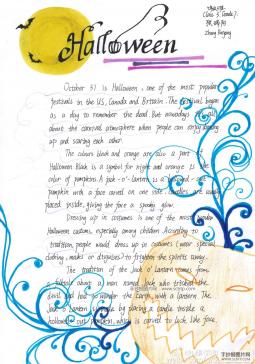 Class 3, Grade 7
Zhang Penpeng
Halloween
October 31 is Halloween, one of the most popular
festivals in the US, Canada and Britain. The festival began
as a day to remember the dead. But nowadays
about the carnival atmosphere when people can enjoy
up and scaring each other.
The colours black and orange are also a part of
Halloween. Black is a symbol for night and orange is the
color of pumpkins. A jack-o'-lantern is a
pumpkin with a face carved on one side. Candles are usually
placed inside, giving the face a spooky glow.
Dressing up in costumes is one of the most popular
Halloween customs, especially among children. According to
tradition, people would dress up in costumes (wear special
clothing, masks or disguises) to frighten the spirits away.
The tradition of the Jack o' Lantern comes from
a folktale about a man named Jack who tricked the
devil and had to wander the Earth with a lantern. The
Jack o' Lantern is made by placing a candle inside a
hollowed-out pumpkin, which is carved to look like face.
手抄报图片网
www.scbtp.com
手抄报图片网